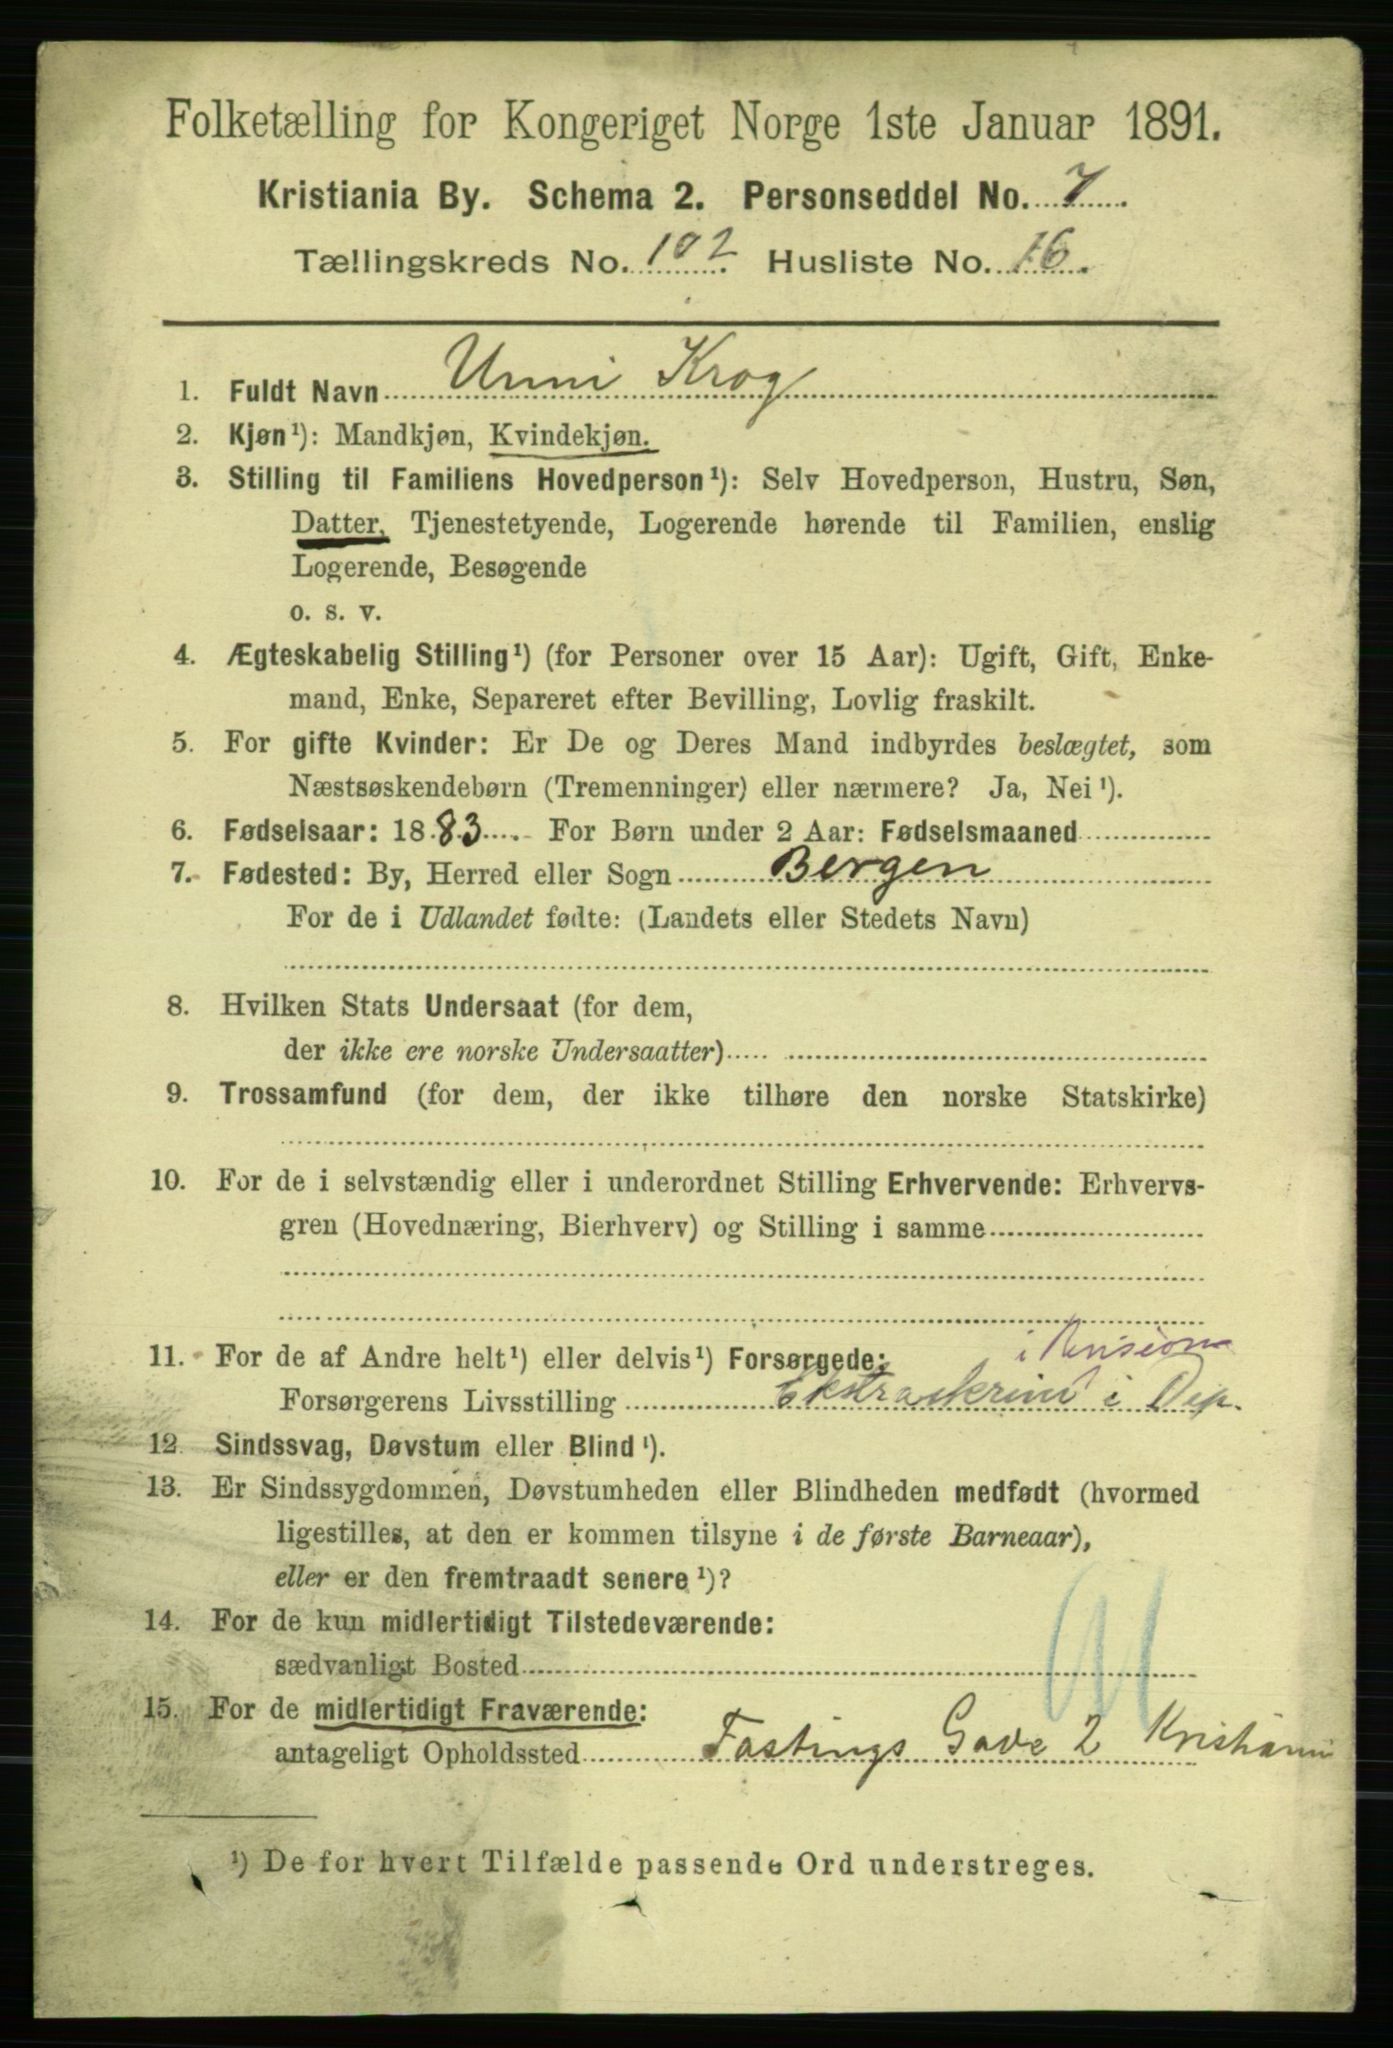 Folketælling for Kongeriget Norge 1ste Januar 1891.
Kristiania By. Schema 2. Personseddel No. 7
Tællingskreds No. 102 Husliste No. 16.
1. Fuldt Navn Unni Krog
2. Kjøn¹): Mandkjøn, Kvindekjøn.
3. Stilling til Familiens Hovedperson¹): Selv Hovedperson, Hustru, Søn,
Datter, Tjenestetyende, Logerende hørende til Familien, enslig
Logerende, Besøgende
o. s. v.
4. Ægteskabelig Stilling¹) (for Personer over 15 Aar): Ugift, Gift, Enke-
mand, Enke, Separeret efter Bevilling, Lovlig fraskilt.
5. For gifte Kvinder: Er De og Deres Mand indbyrdes beslægtet, som
Næstsøskendebørn (Tremenninger) eller nærmere? Ja, Nei¹).
6. Fødselsaar: 1883. For Børn under 2 Aar: Fødselsmaaned
7. Fødested: By, Herred eller Sogn Bergen
For de i Udlandet fødte: (Landets eller Stedets Navn)
8. Hvilken Stats Undersaat (for dem,
der ikke ere norske Undersaatter)
9. Trossamfund (for dem, der ikke tilhøre den norske Statskirke)
10. For de i selvstændig eller i underordnet Stilling Erhvervende: Erhvervs-
gren (Hovednæring, Bierhverv) og Stilling i samme
11. For de af Andre helt¹) eller delvis¹) Forsørgede: i
Forsørgerens Livsstilling i Dep.
12. Sindssvag, Døvstum eller Blind¹).
13. Er Sindssygdommen, Døvstumheden eller Blindheden medfødt (hvormed
ligestilles, at den er kommen tilsyne i de første Barneaar),
eller er den fremtraadt senere¹)?
14. For de kun midlertidigt Tilstedeværende:
sædvanligt Bosted
15. For de midlertidigt Fraværende:
antageligt Opholdssted Fastings Gade 2 Kristiania
¹) De for hvert Tilfælde passende Ord understreges.